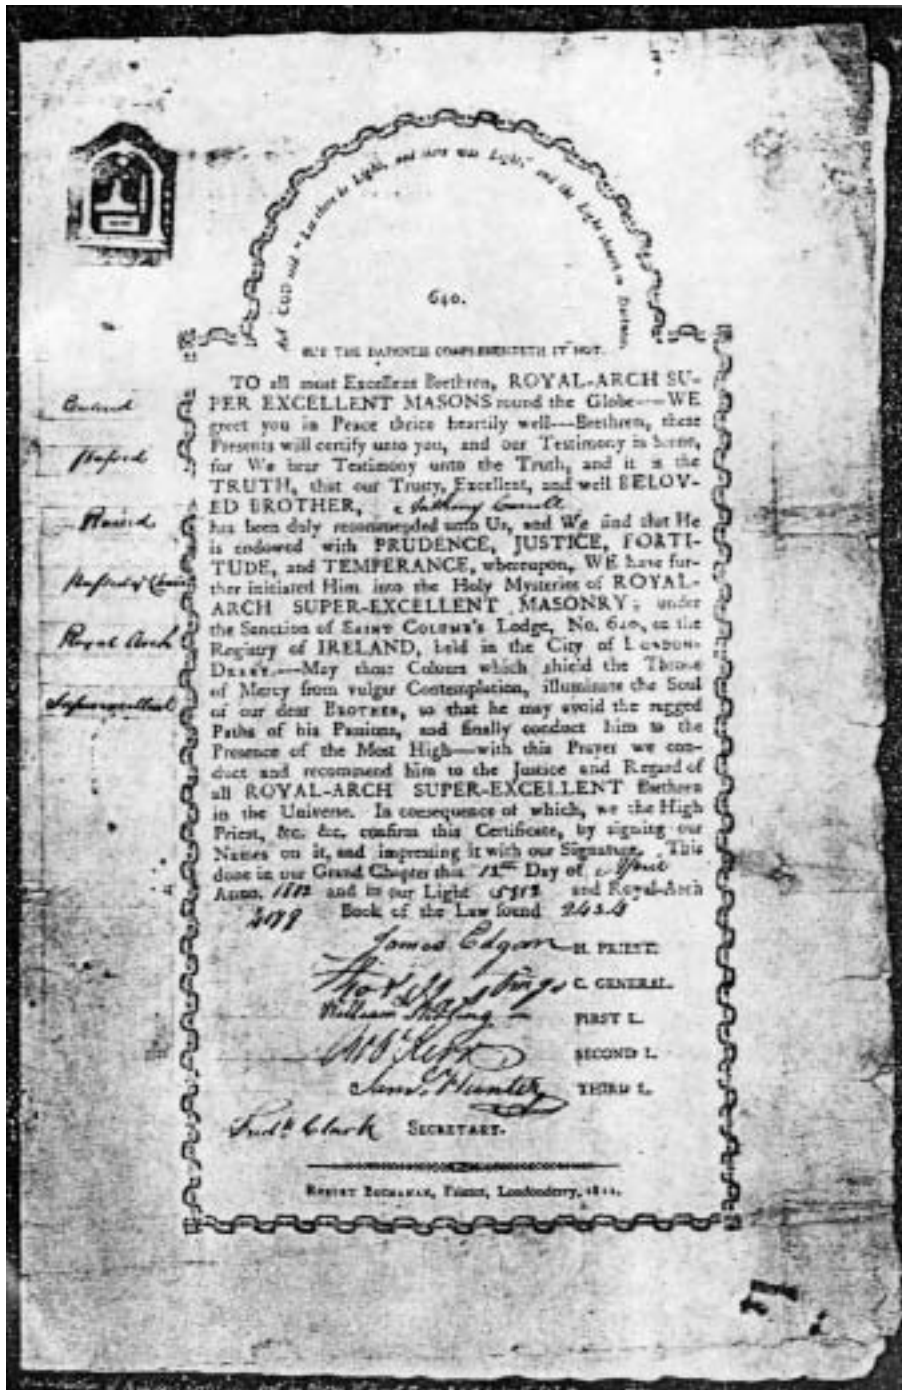 And GOD said "Let there be Light, and there was Light," and the Light shineth in Darkness
640.
BUT THE DARKNESS COMPREHENDETH IT NOT.
TO all most Excellent Brethren, ROYAL-ARCH SU-
PER EXCELLENT MASONS round the Globe---WE
greet you in Peace thrice heartily well---Brethren, these
Presents will certify unto you, and our Testimony is
for We bear Testimony unto the Truth, and it is the
TRUTH, that our Trusty, Excellent, and well BELOV-
ED BROTHER, Anthony
has been duly recommended unto Us, and We find that He
is endowed with PRUDENCE, JUSTICE, FORTI-
TUDE, and TEMPERANCE, whereupon, WE have fur-
ther initiated Him into the Holy Mysteries of ROYAL-
ARCH SUPER-EXCELLENT MASONRY; under
the Sanction of SAINT COLUMB'S Lodge, No. 640, on the
Registry of IRELAND, held in the City of LONDON-
DERRY.---May those Colours which shield the Throne
of Mercy from vulgar Contemplation, illuminate the Soul
of our dear BROTHER, so that he may avoid the rugged
Paths of his Passions, and finally conduct him to the
Presence of the Most High---with this Prayer we con-
duct and recommend him to the Justice and Regard of
all ROYAL-ARCH SUPER-EXCELLENT Brethren
in the Universe. In consequence of which, we the High
Priest, &c. &c. confirm this Certificate, by signing our
Names on it, and impressing it with our Signature. This
done in our Grand Chapter this 12th Day of April
Anno. 1812 and in our Light 5812 and Royal-Arch
Book of the Law found 2434
James Edgar H. PRIEST.
C. GENERAL.
William FIRST L.
SECOND L.
Saml. Hunter THIRD L.
Fredk Clark SECRETARY.
ROBERT BUCHANAN, Printer, Londonderry, 1811.
Passed
Raised
Royal Arch
Superexcellent